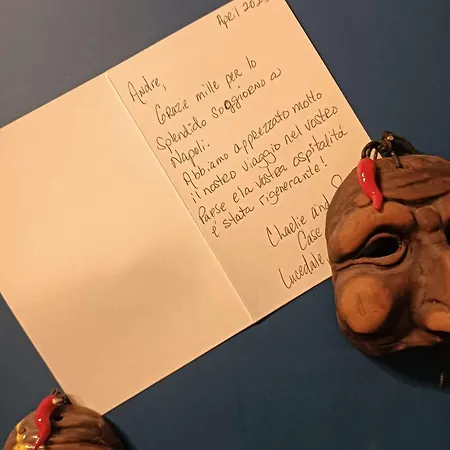 April 202
Andre,
Grazie mille per lo
splendido soggiorno a
Napoli.
Abbiamo apprezzato molto
il nostro viaggio nel vostro
Paese e la vostra ospitalità
è stata rigenerante!
Charlie and
Case
Lucedale,